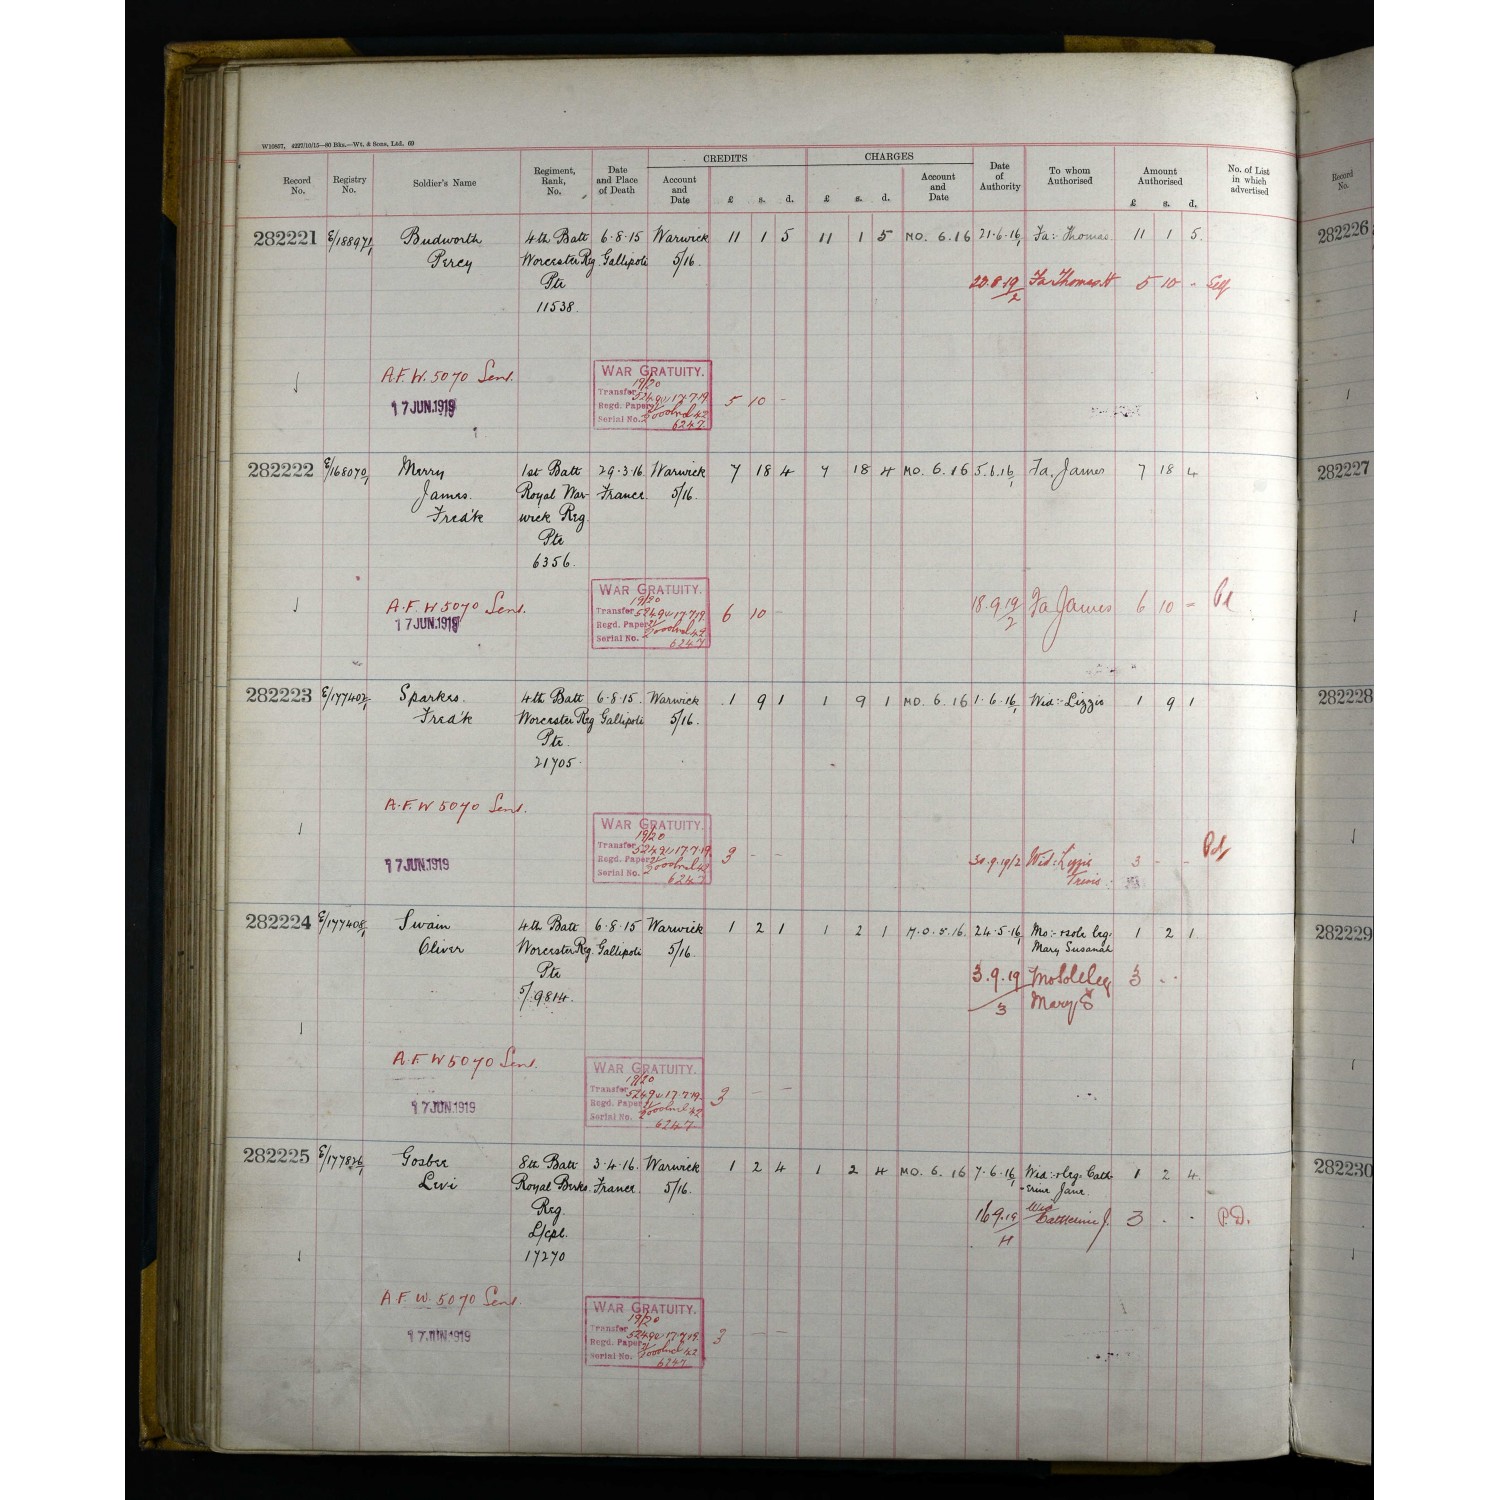 W10857, 4227/10/15—80 Bks.—Wt. & Sons, Ltd. 69
Record No. Registry No. Soldier's Name Regiment, Rank, No. Date and Place of Death CREDITS Account and Date £ s. d. CHARGES £ s. d. Account and Date Date of Authority To whom Authorised Amount Authorised £ s. d. No. of List in which advertised Record No.
282221 E/188971/1 Budworth 4th Batt 6.8.15 Warwick 11 1 5 11 1 5 MO. 6.16 21.6.16/1 Fa:- Thomas 11 1 5 282226
Percy Worcester Reg Gallipoli 5/16.
Pte 20.8.19/2 Fa Thomas H 5 10 - Self
11538.
A.F.W. 5070 Sent. WAR GRATUITY.
17 JUN.1919 19/20
Transfer 5249 17.7.19
Regd. Paper 5 10 -
Serial No. 6247
282222 E/168070/1 Merry 1st Batt 29.3.16 Warwick 7 18 4 7 18 4 MO. 6.16 5.6.16/1 Fa. James 7 18 4 282227
James. Royal War- France 5/16.
Fred'k wick Reg.
Pte
6356.
A.F.W 5070 Sent. WAR GRATUITY. 18.9.19/2 Fa James 6 10 -
17 JUN.1919 19/20
Transfer 5249 17.7.19 6 10 -
Regd. Paper
Serial No. 6247
282223 E/177402/1 Sparkes. 4th Batt 6.8.15. Warwick 1 9 1 1 9 1 MO. 6.16 1.6.16/1 Wid:- Lizzie 1 9 1 282228
Fred'k Worcester Reg Gallipoli 5/16.
Pte.
21705.
A.F.W 5070 Sent.
WAR GRATUITY.
19/20
17 JUN.1919 Transfer 5249 17.7.19
Regd. Paper 3 - - 30.9.19/2 Wid: Lizzie 3 - - Pd
Serial No. 6247
282224 E/177408/1 Swain 4th Batt 6.8.15 Warwick 1 2 1 1 2 1 M.O. 5.16. 24.5.16/1 Mo:- & sole leg. 1 2 1 282229
Oliver Worcester Reg. Gallipoli 5/16. Mary Susanah
Pte 3.9.19/3 Mo Sole Leg 3 - -
5/9814. Mary S
A.F.W 5070 Sent. WAR GRATUITY.
17 JUN.1919 19/20
Transfer 5249 17.7.19. 3 - -
Regd. Paper
Serial No. 6247
282225 E/177826/1 Gosbee 8th Batt 3.4.16. Warwick 1 2 4 1 2 4 MO. 6.16 7.6.16/1 Wid:- & leg. Cath- 1 2 4 282230
Levi Royal Berks. France. 5/16. erine Jane.
Reg. 16.9.19/4 Wid Catherine J. 3 - - P.D.
L/cpl.
17270
A.F.W. 5070 Sent. WAR GRATUITY.
17 JUN.1919 19/20
Transfer 5249 17.7.19. 3 - -
Regd. Paper
Serial No. 6247